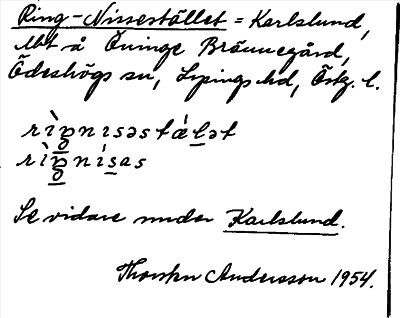 Ring-Nissestället = Karlslund,
lht å Öninge Brännegård,
Ödeshögs sn, Lysings hd, Östg. l.
rìŋnɩsəstǽḷət
rìŋnísas
Se vidare under Karlslund.
Thorsten Andersson 1954.